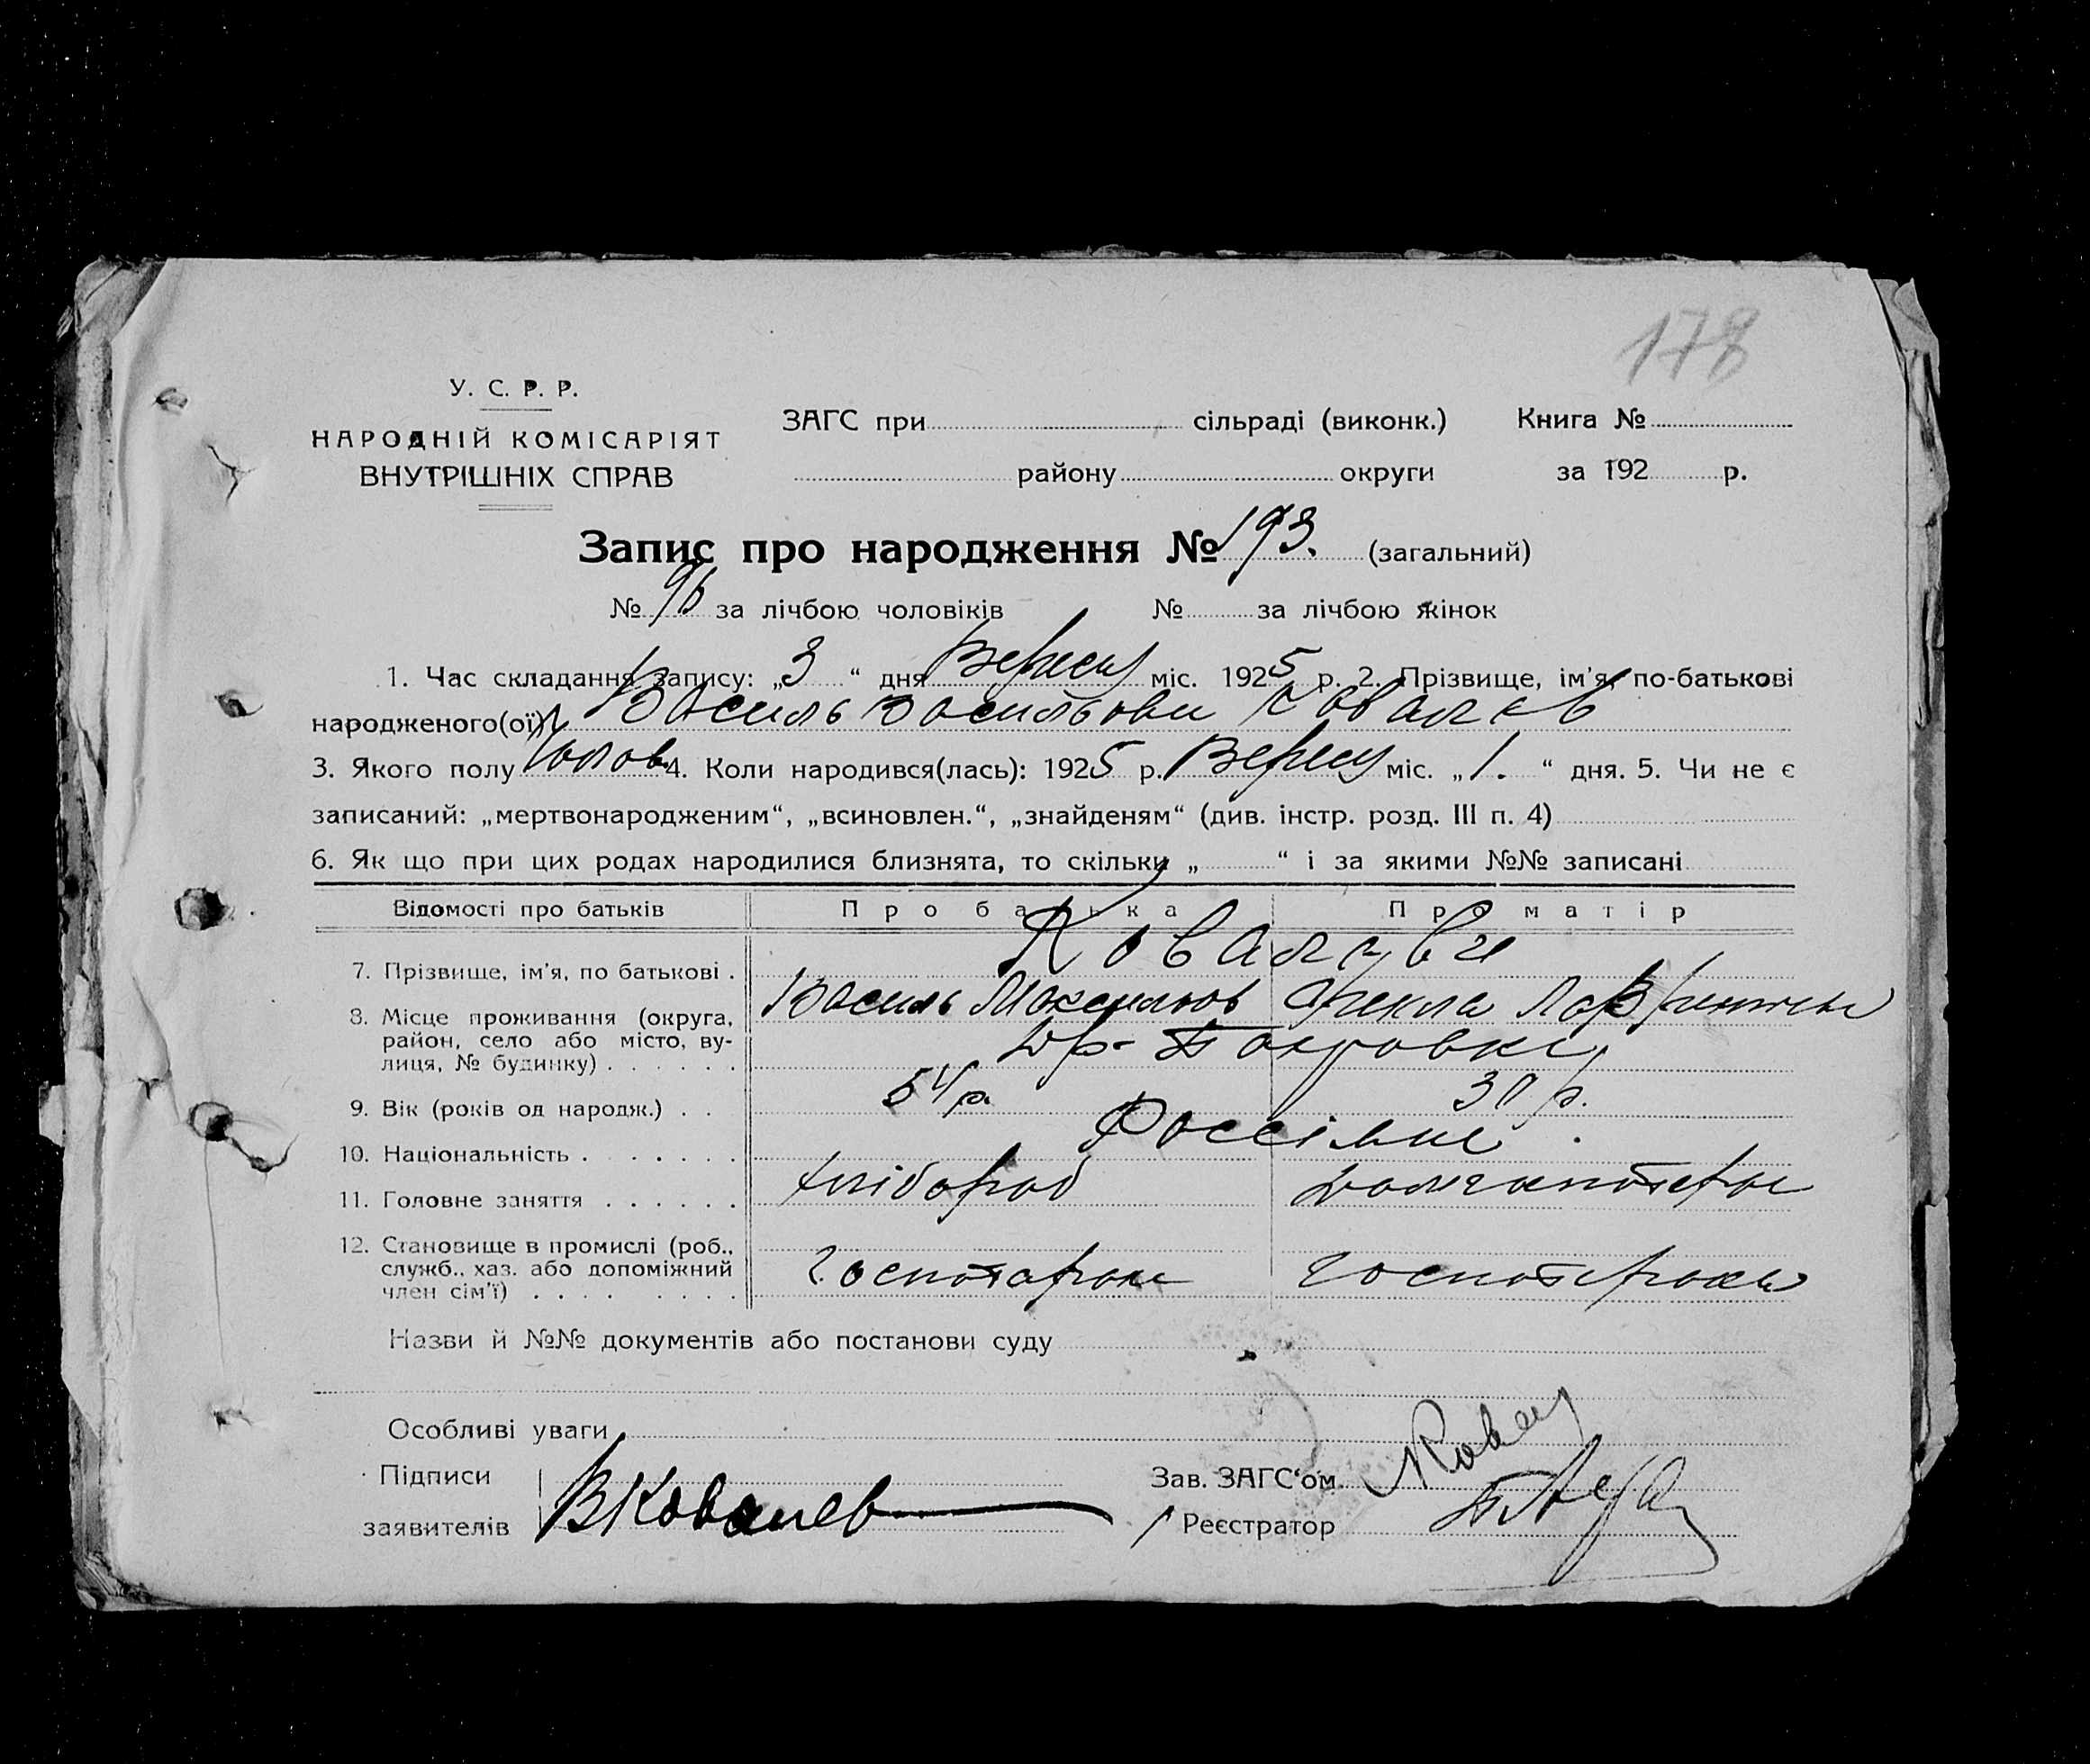 178
У. С. Р. Р.
НАРОДНІЙ КОМІСАРІЯТ
ВНУТРІШНІХ СПРАВ
ЗАГС при сільраді (виконк.) Книга №
району округи за 192 р.
Запис про народження № 193. (загальний)
№ 96 за лічбою чоловіків № за лічбою жінок
1. Час складання запису: „3“ дня Вересн міс. 1925 р. 2. Прізвище, ім'я, по-батькові
народженого(ої) Василь Васильови Ковалев
3. Якого полу чолов. 4. Коли народився(лась): 1925 р. Вересн міс. „1.“ дня. 5. Чи не є
записаний: „мертвонародженим“, „всиновлен.“, „знайденям“ (див. інстр. розд. III п. 4)
6. Як що при цих родах народилися близнята, то скільки „ “ і за якими №№ записані
Відомості про батьків Про батька Про матір
7. Прізвище, ім'я, по батькові . Ковалеви
Василь Максимов Фекла
8. Місце проживання (округа,
район, село або місто, ву-
лиця, № будинку) . . . . . .
9. Вік (років од народж.) . . 54 р. 30 р.
10. Національність . . . . . . .
11. Головне заняття . . . . . . хлібороб
12. Становище в промислі (роб.,
служб., хаз. або допоміжний
член сім'ї) . . . . . . . .
Назви й №№ документів або постанови суду
Особливі уваги
Підписи
заявителів ВКовалев
Зав. ЗАГС‘ом
Реєстратор